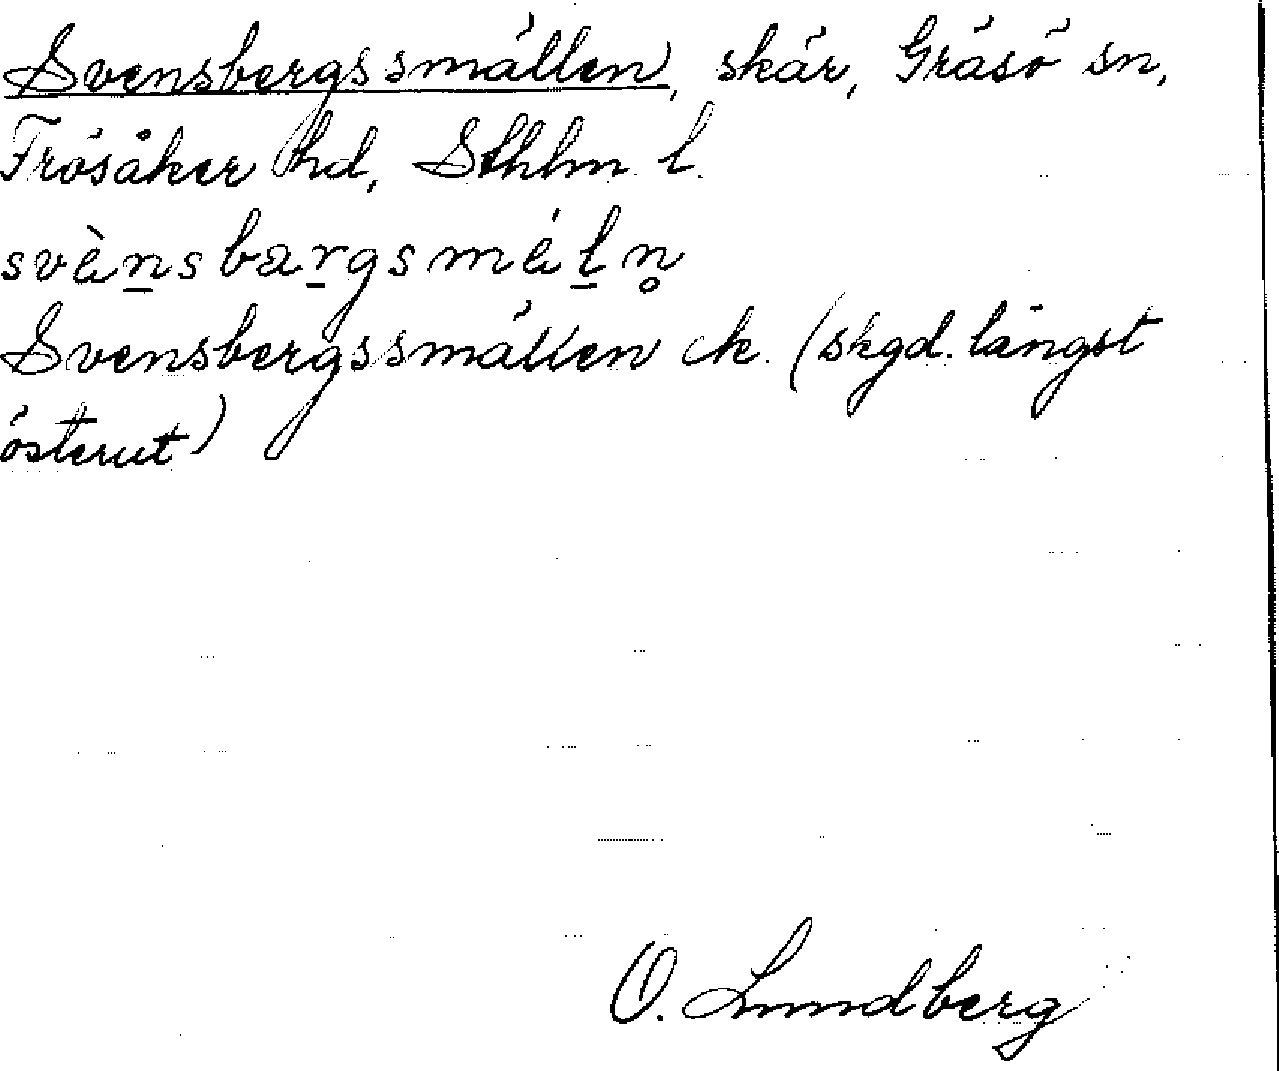 Svensbergssmällen, skär, Gräsö sn,
Frösåker hd, Sthlm l.
svènsbargsmäln̥
Svensbergssmällen ek. (skgd. längst
österut)
O. Lundberg